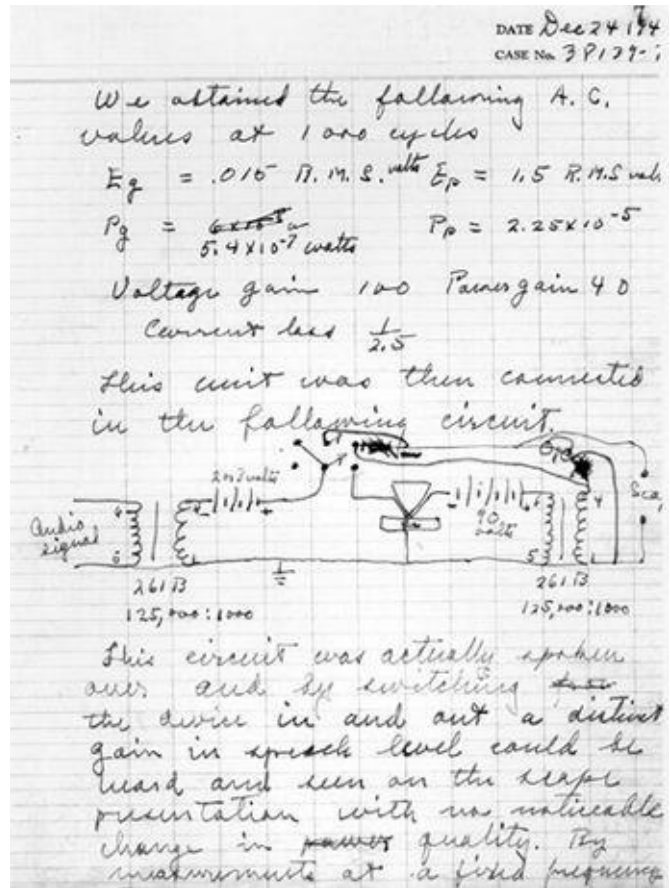 7
DATE Dec 24 194
CASE No. 38139-7
We obtained the following A.C.
values at 1000 cycles
Eg = .015 R.M.S. volts Ep = 1.5 R.M.S volts
Pg = 6 x 10-5 Pp = 2.25 x 10-5
5.4 x 10-7 watts
Voltage gain 100 Power gain 40
Current loss 1/2.5
This unit was then connected
in the following circuit.
volts
Audio
signal
4
4
6
1
90
volts
5
4
1
261B
261B
125,000:1000
125,000:1000
This circuit was actually spoken
over and by switching
the device in and out a distinct
gain in speech level could be
heard and seen on the scope
presentation with no noticeable
change in power quality. By
measurements at a fixed frequency